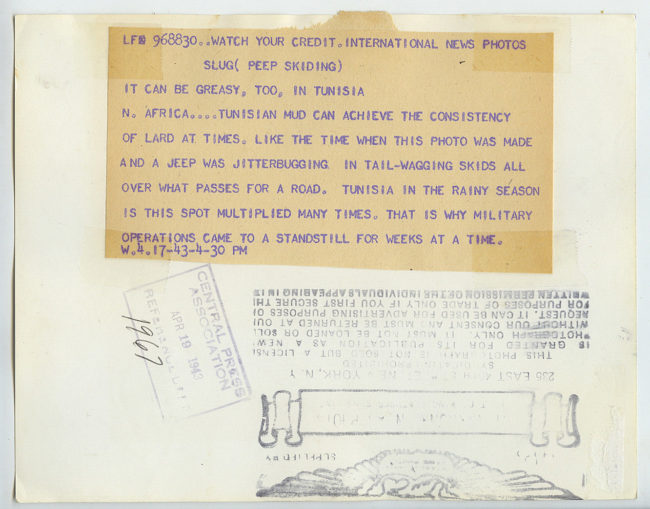 LFN 968830..WATCH YOUR CREDIT.INTERNATIONAL NEWS PHOTOS
SLUG( PEEP SKIDING)
IT CAN BE GREASY, TOO, IN TUNISIA
N. AFRICA....TUNISIAN MUD CAN ACHIEVE THE CONSISTENCY
OF LARD AT TIMES. LIKE THE TIME WHEN THIS PHOTO WAS MADE
AND A JEEP WAS JITTERBUGGING IN TAIL-WAGGING SKIDS ALL
OVER WHAT PASSES FOR A ROAD. TUNISIA IN THE RAINY SEASON
IS THIS SPOT MULTIPLIED MANY TIMES. THAT IS WHY MILITARY
OPERATIONS CAME TO A STANDSTILL FOR WEEKS AT A TIME.
W.4.17-43-4-30 PM
CENTRAL PRESS
ASSOCIATION
APR 19 1943
REFERENCE
1967
SUPPLIED BY
235 EAST 45TH ST. NEW YORK, N.Y.
THIS PHOTOGRAPH IS NOT SOLD BUT A LICENSE
IS GRANTED FOR ITS PUBLICATION AS A NEWS
PHOTOGRAPH ONLY. IT MUST NOT BE LOANED OR SOLD
WITHOUT OUR CONSENT AND MUST BE RETURNED AT OUR
REQUEST. IT CANNOT BE USED FOR ADVERTISING PURPOSES OR
FOR PURPOSES OF TRADE OR IF ONLY IF YOU FIRST SECURE THE
WRITTEN PERMISSION OF THE INDIVIDUALS APPEARING IN IT